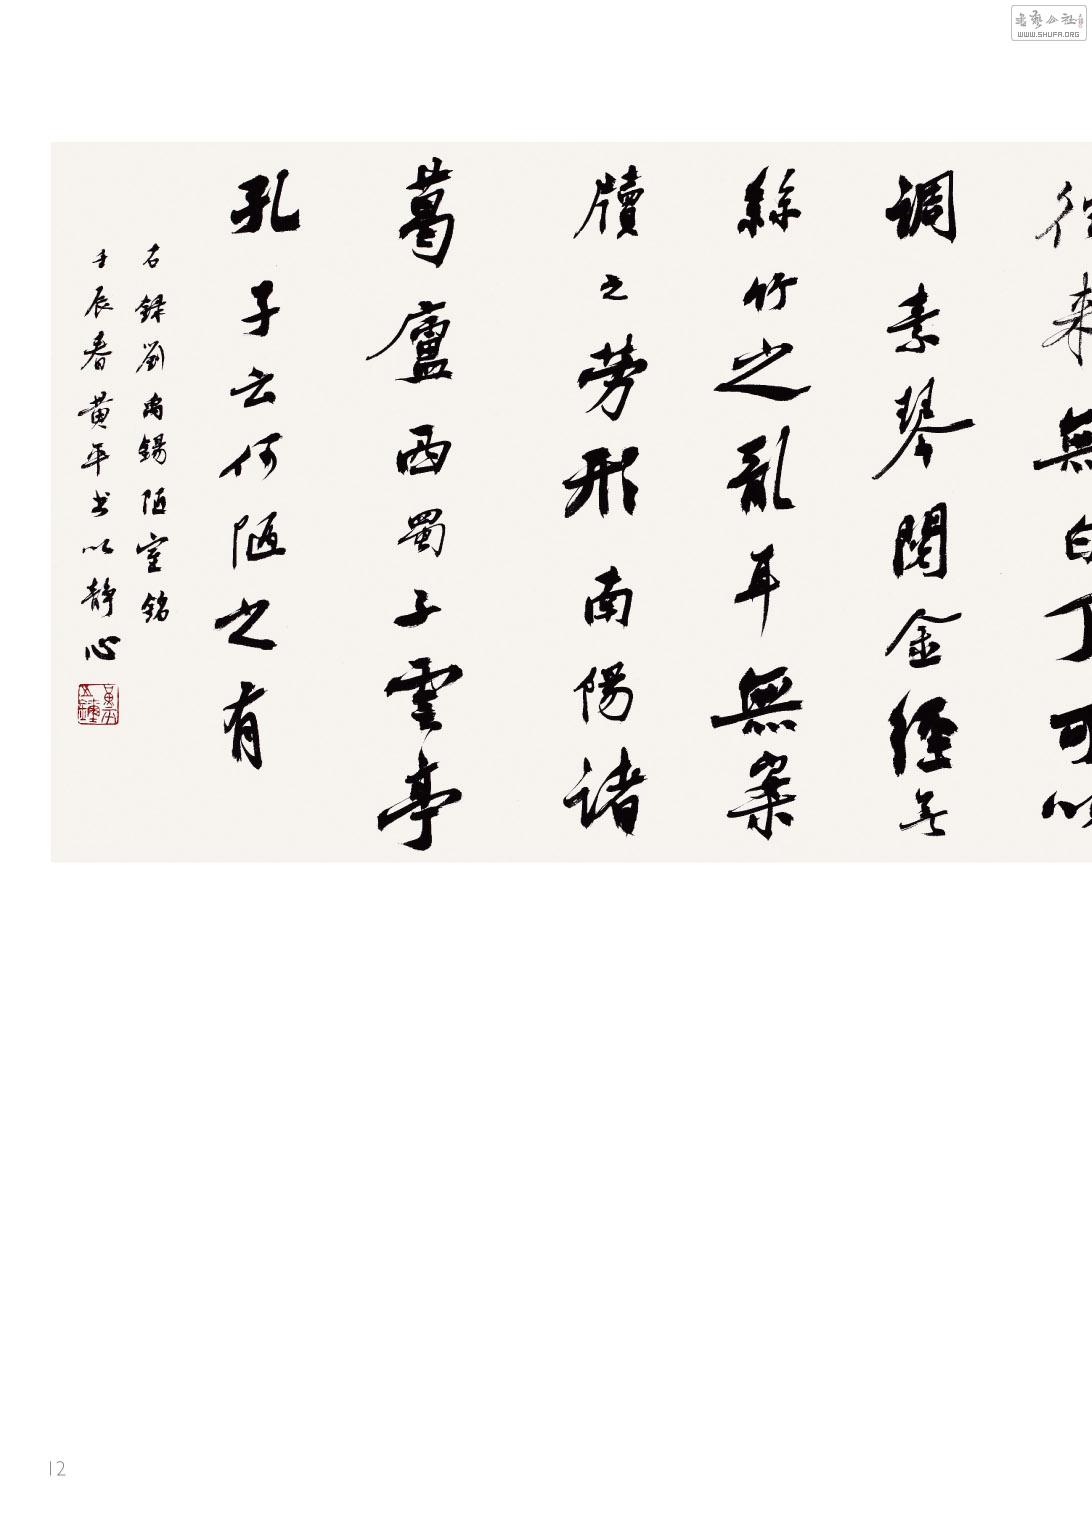 往来無白丁可以
调素琴閱金經無
絲竹之亂耳無案
牘之劳形南陽诸
葛廬西蜀子雲亭
孔子云何陋之有
右録劉禹錫陋室銘
壬辰春黄平书以静心
WWW.SHUFA.ORG
12